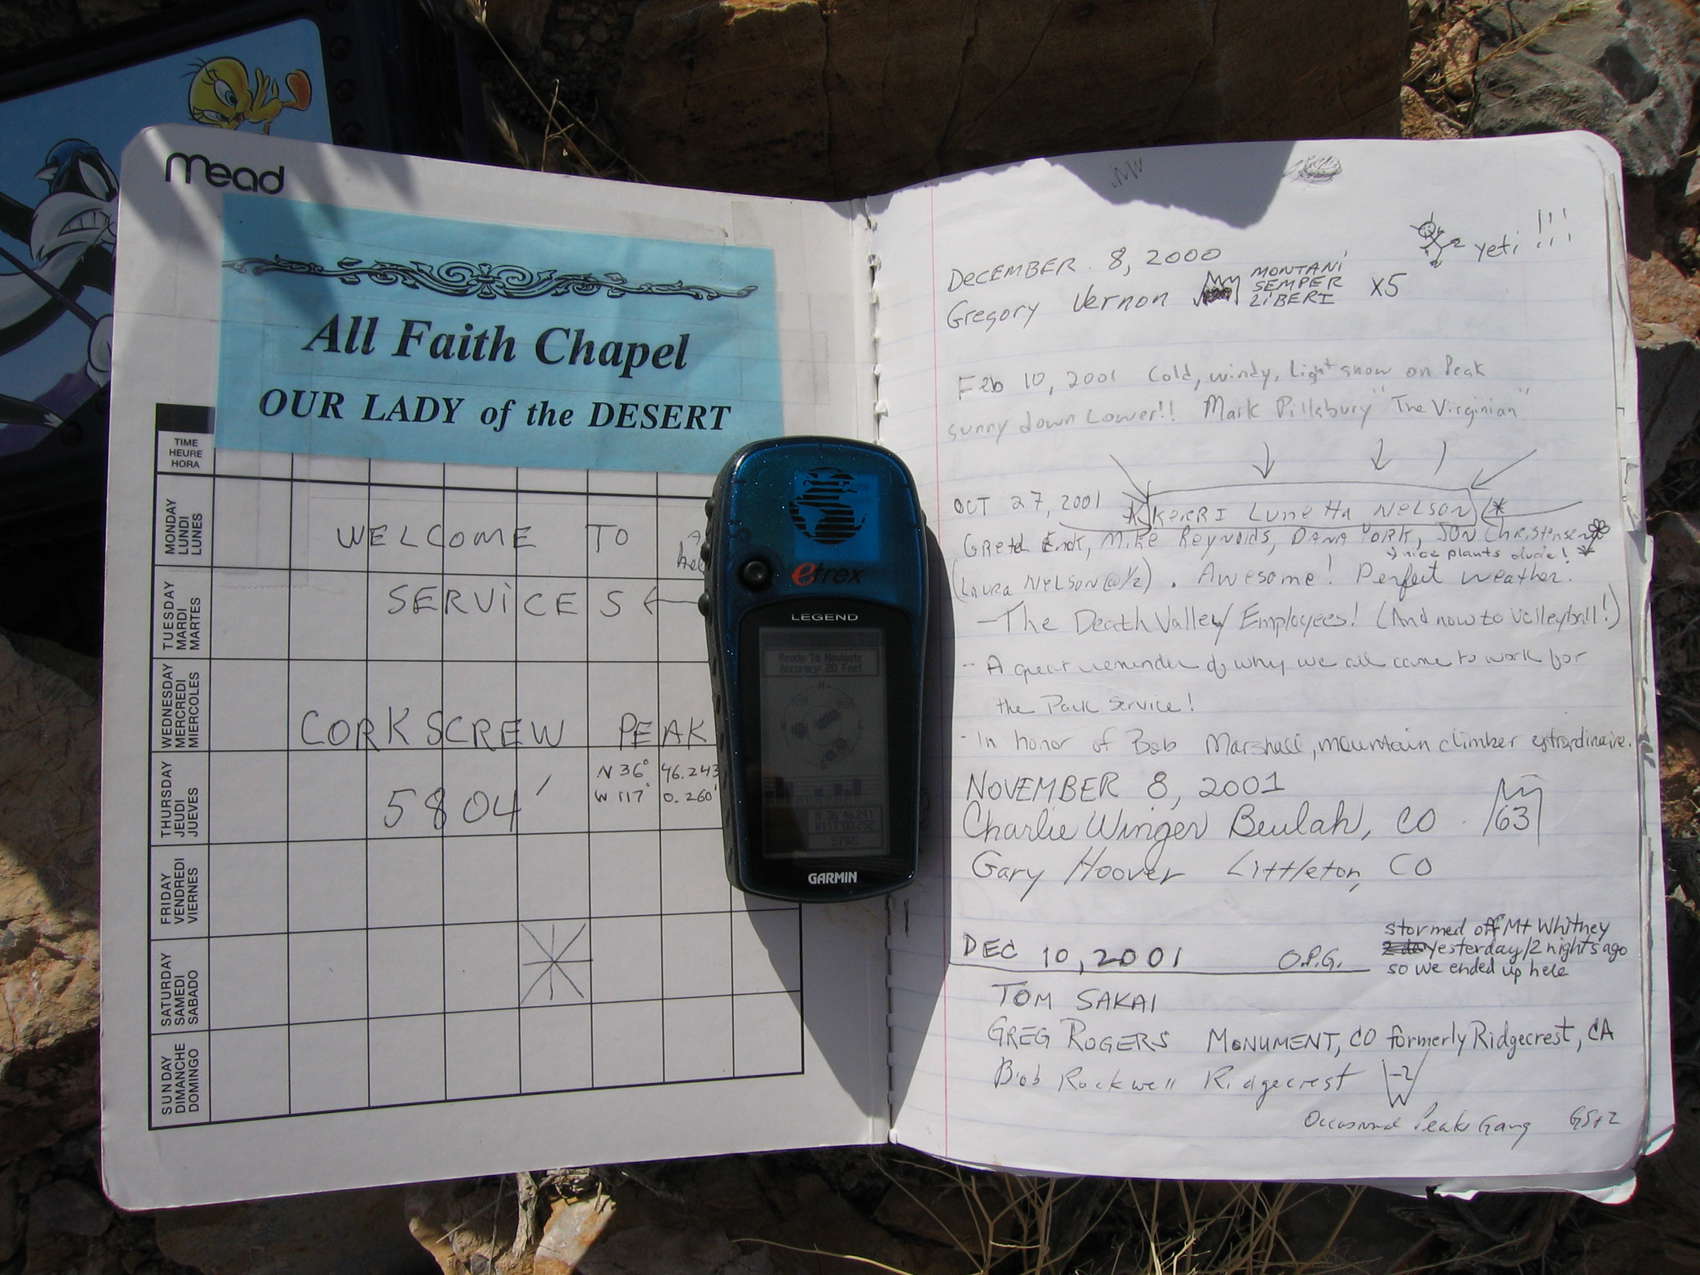 Mead
All Faith Chapel
OUR LADY of the DESERT
TIME
HEURE
HORA
MONDAY
LUNDI
LUNES
TUESDAY
MARDI
MARTES
WEDNESDAY
MERCREDI
MIERCOLES
THURSDAY
JEUDI
JUEVES
FRIDAY
VENDREDI
VIERNES
SATURDAY
SAMEDI
SABADO
SUNDAY
DIMANCHE
DOMINGO
WELCOME TO
SERVICES
CORKSCREW PEAK
5804'
N 36° 46.243
W 117° 0.260'
etrex
LEGEND
Ready To Navigate
Accuracy: 20 Feet
GARMIN
yeti !!!
DECEMBER 8, 2000
Gregory Vernon MONTANI
SEMPER
LIBERI X5
Feb 10, 2001 Cold, windy, Light snow on Peak
sunny down Lower!! Mark Pillsbury "The Virginian"
OCT 27, 2001 KERRI Lunetta NELSON
Mike Reynolds, DANA YORK, JON Christensen
nice plants dude!
(Laura NELSON @ 1/2). Awesome! Perfect weather.
- The Death Valley Employees! (And now to Volleyball!)
- A great reminder of why we all came to work for
the Park Service!
- In honor of Bob Marshall, mountain climber extrordinaire.
NOVEMBER 8, 2001
Charlie Winger Beulah, CO 63
Gary Hoover Littleton, CO
DEC 10, 2001 O.P.G.
stormed off Mt Whitney
yesterday/2 nights ago
so we ended up here
TOM SAKAI
GREG ROGERS MONUMENT, CO formerly Ridgecrest, CA
Bob Rockwell Ridgecrest -2
Occasional Peaks Gang